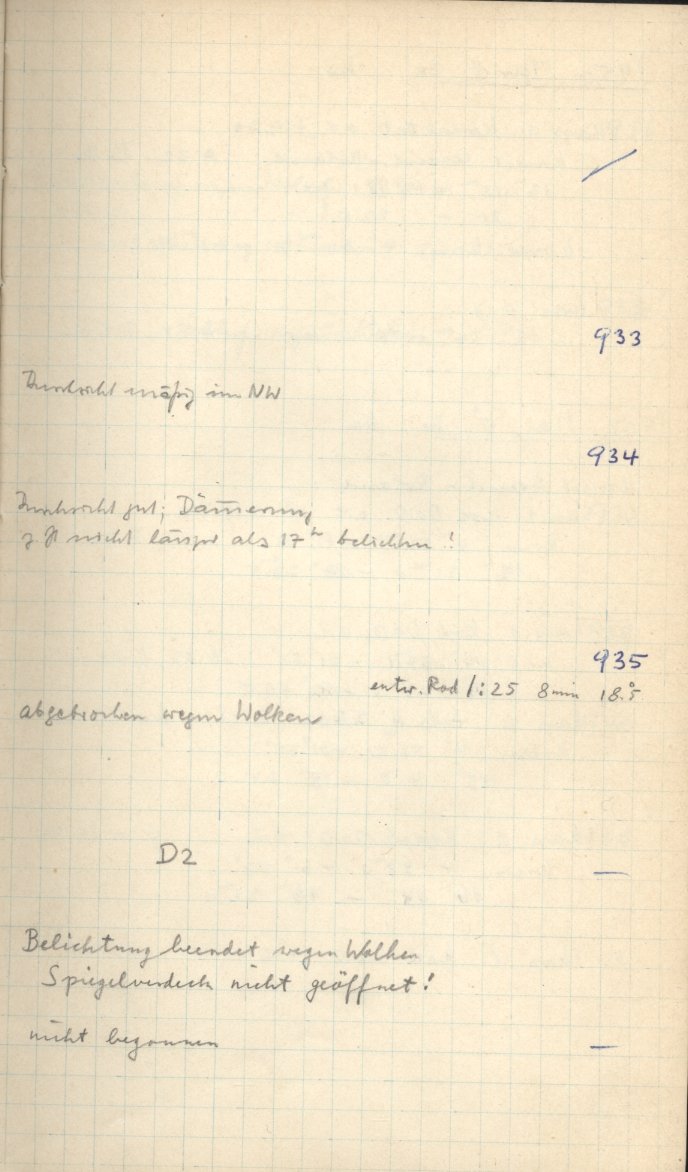 933
Durchsicht mäßig im NW
934
Durchsicht gut; Dämerung
nicht länger als 17ʰ belichten!
935
entw. Rod 1:25 8 min 18.°5
abgebrochen wegen Wolken
D2
—
Belichtung beendet wegen Wolken
Spiegelverdeck nicht geöffnet!
nicht begonnen
—